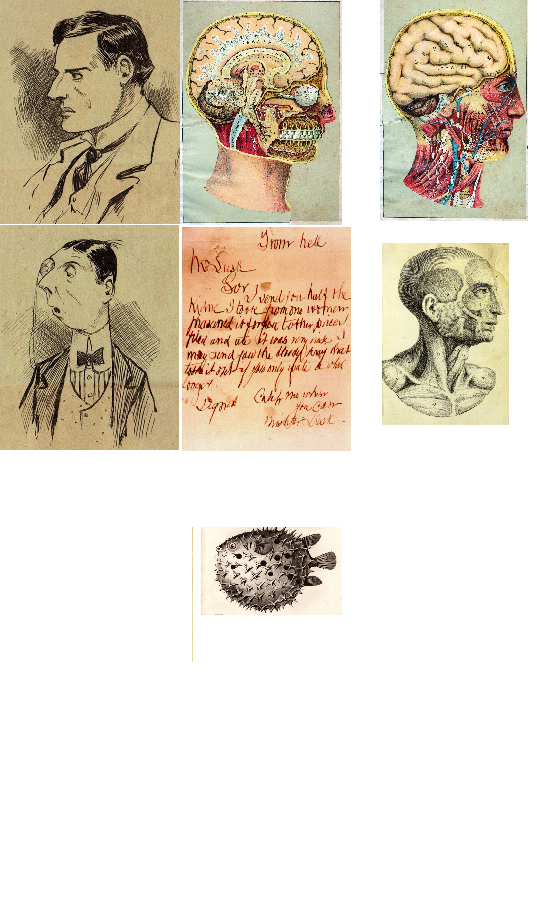 From hell
Mr Lusk
Sor
I send you half the
Kidne I took from one women
prasarved it for you tother piece
fried and ate it was very nise I
may send you the bloody knif that
took it out if you only wate a whil
longer
signed Catch me when
you can
Mishter Lusk